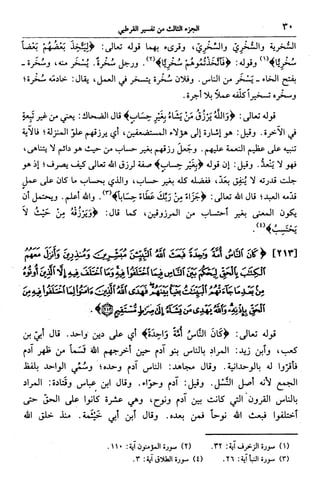 ٣٠ الجزء الثالث من تفسير القرطبي
السُّخرية والسُّخريّ والسِّخريّ، وقرىء بهما قوله تعالى: ﴿لِيَتَّخِذَ بَعْضُهُمْ بَعْضاً
سُخْرِيًّا﴾(١) وقوله: ﴿فَاتَّخَذْتُمُوهُمْ سِخْرِيًّا﴾(٢). ورجل سُخْرة. يُسْخَر منه، وسُخَرة ـ
بفتح الخاء ـ يَسْخَر من الناس. وفلان سُخْرة يتسخر في العمل، يقال: خادمه سُخْرة؛
وسخّره تسخيراً كلّفه عملاً بلا أجرة.
قوله تعالى: ﴿وَاللَّهُ يَرْزُقُ مَنْ يَشَاءُ بِغَيْرِ حِسَابٍ﴾ قال الضحاك: يعني من غير تبِعة
في الآخرة. وقيل: هو إشارة إلى هؤلاء المستضعفين، أي يرزقهم علوّ المنزلة؛ فالآية
تنبيه على عظيم النعمة عليهم. وجعل رزقهم بغير حساب من حيث هو دائم لا يتناهى،
فهو لا يَنعدّ. وقيل: إن قوله ﴿بِغَيْرِ حِسَابٍ﴾ صفة لرزق الله تعالى كيف يصرف؛ إذ هو
جلت قدرته لا يُنفِق بعَدّ، ففضله كله بغير حساب، والذي بحساب ما كان على عمل
قدّمه العبد؛ قال الله تعالى: ﴿جَزَاءً مِنْ رَبِّكَ عَطَاءً حِسَاباً﴾(٣). والله أعلم. ويحتمل أن
يكون المعنى بغير أحتساب من المرزوقين، كما قال: ﴿وَيَرْزُقْهُ مِنْ حَيْثُ لَا
يَحْتَسِبُ﴾(٤).
[٢١٣] ﴿كَانَ النَّاسُ أُمَّةً وَاحِدَةً فَبَعَثَ اللَّهُ النَّبِيِّينَ مُبَشِّرِينَ وَمُنذِرِينَ وَأَنزَلَ مَعَهُمُ
الْكِتَابَ بِالْحَقِّ لِيَحْكُمَ بَيْنَ النَّاسِ فِيمَا اخْتَلَفُوا فِيهِ وَمَا اخْتَلَفَ فِيهِ إِلَّا الَّذِينَ أُوتُوهُ
مِن بَعْدِ مَا جَاءَتْهُمُ الْبَيِّنَاتُ بَغْيًا بَيْنَهُمْ فَهَدَى اللَّهُ الَّذِينَ آمَنُوا لِمَا اخْتَلَفُوا فِيهِ مِنَ
الْحَقِّ بِإِذْنِهِ وَاللَّهُ يَهْدِي مَن يَشَاءُ إِلَىٰ صِرَاطٍ مُّسْتَقِيمٍ﴾.
قوله تعالى: ﴿كَانَ النَّاسُ أُمَّةً وَاحِدَةً﴾ أي على دين واحد. قال أبيّ بن
كعب، وأبن زيد: المراد بالناس بنو آدم حين أخرجهم الله نَسَماً من ظهر آدم
فأقرّوا له بالوحدانية. وقال مجاهد: الناس آدم وحده؛ وسُمِّي الواحد بلفظ
الجمع لأنه أصل النَّسْل. وقيل: آدم وحوّاء. وقال ابن عباس وقتادة: المراد
بالناس القرون التي كانت بين آدم ونوح، وهي عشرة كانوا على الحق حتى
أختلفوا فبعث الله نوحاً فمن بعده. وقال أبن أبي خَيْثَمة. منذ خلق الله
(١) سورة الزخرف آية: ٣٢. (٢) سورة المؤمنون آية: ١١٠.
(٣) سورة النبأ آية: ٢٦. (٤) سورة الطلاق آية: ٣.